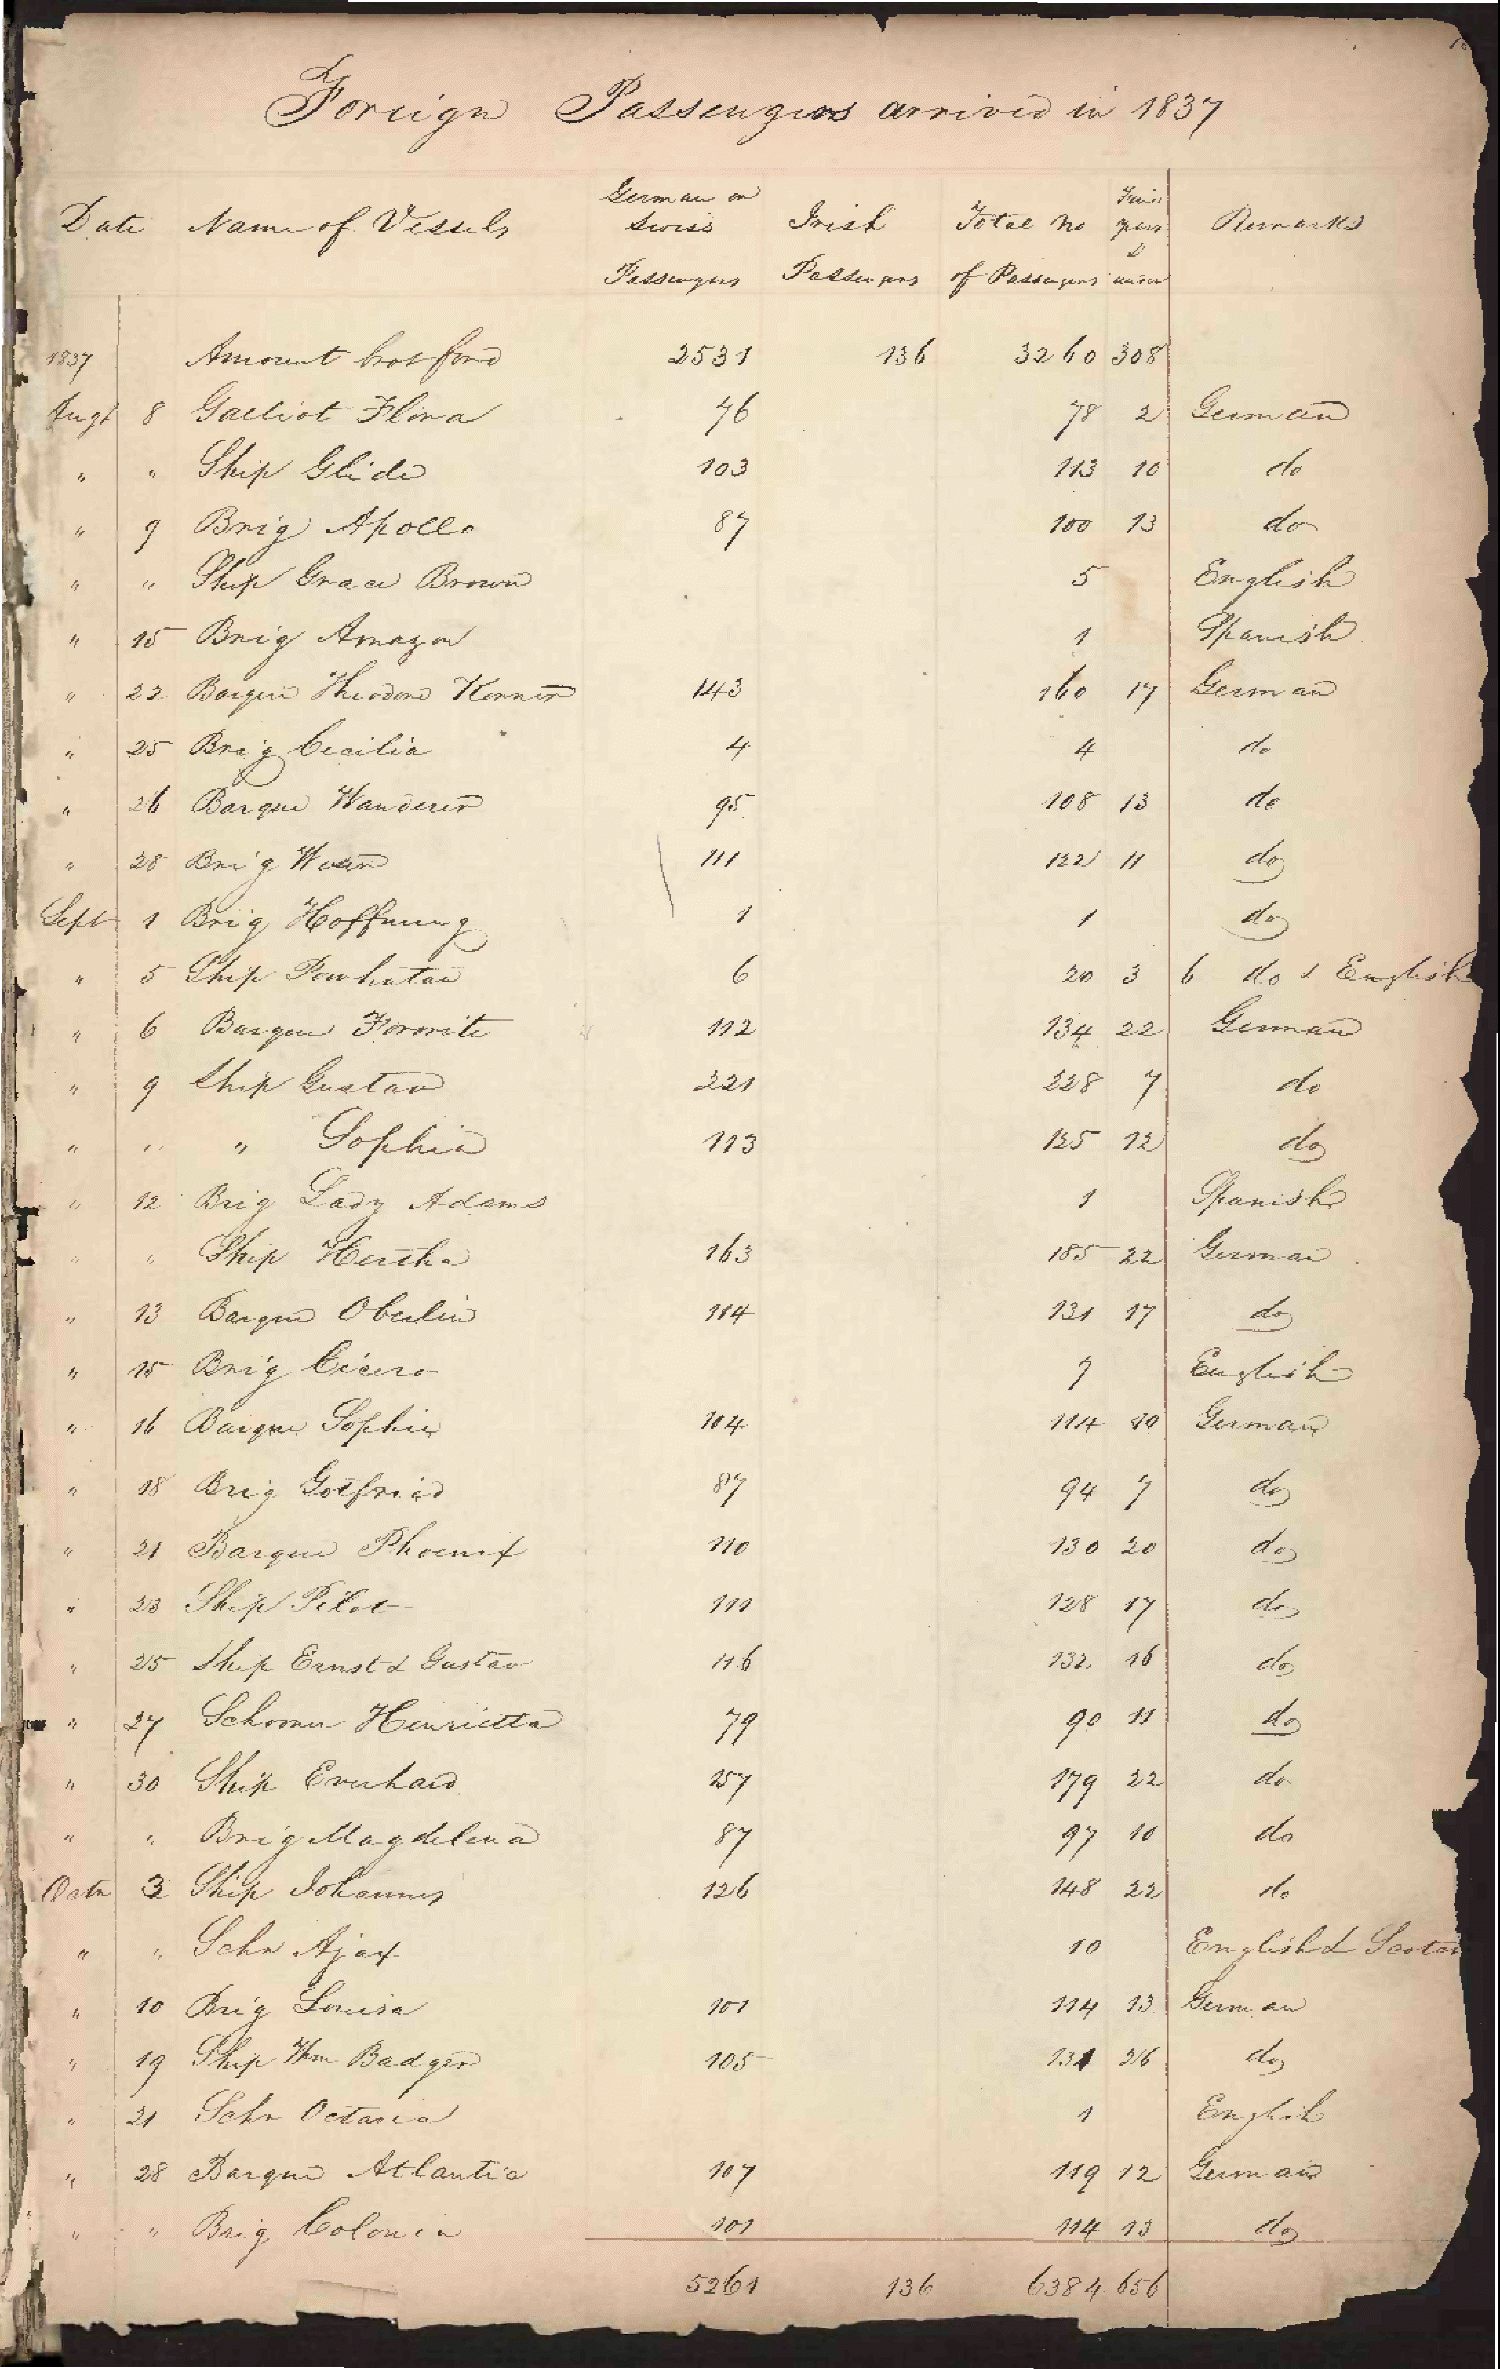 Foreign Passengers arrived in 1837
Date Name of Vessels German or Swiss Passengers Irish Passengers Total No of Passengers years & under Remarks
1837 Amount brot ford 2531 136 3260 308
Augt 8 Galliot Flora 76 78 2 German
" " Ship Glide 103 113 10 do
" 9 Brig Apollo 87 100 13 do
" " Ship Grace Brown 5 English
" 15 Brig Amazon 1 Spanish
" 22 Barque Theodore Korner 143 160 17 German
" 25 Brig Cecilia 4 4 do
" 26 Barque Wanderer 95 108 13 do
" 28 Brig 111 122 11 do
Sept 1 Brig Hoffnung 1 1 do
" 5 Ship Powhatan 6 20 3 6 do & English
" 6 Barque Favorite 112 134 22 German
" 9 Ship Gustav 221 228 7 do
" " " Sophia 113 125 12 do
" 12 Brig Lady Adams 1 Spanish
" " Ship Hertha 163 185 22 German
" 13 Barque Oberlin 114 131 17 do
" 15 Brig Cicero 7 English
" 16 Barque Sophie 104 114 10 German
" 18 Brig Gotfried 87 94 7 do
" 21 Barque Phoenix 110 130 20 do
" 23 Ship Pilot 111 128 17 do
" 25 Ship Ernst & Gustav 116 132 16 do
" 27 Schooner Henrietta 79 90 11 do
" 30 Ship Everhard 157 179 22 do
" " Brig Magdelena 87 97 10 do
Octr 3 Ship Johannes 126 148 22 do
" " Schr Ajax 10 English &
" 10 Brig Louisa 101 114 13 German
" 19 Ship Wm Badger 105 131 26 do
" 21 Schr Octavia 1 English
" 28 Barque Atlantic 107 119 12 German
" " Brig Colonia 101 114 13 do
5261 136 6384 656